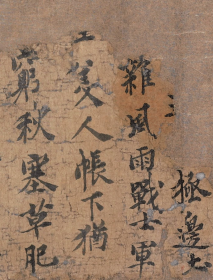 極邊土
雜風雨戰士軍
美人帳下猶
窮秋塞草肥